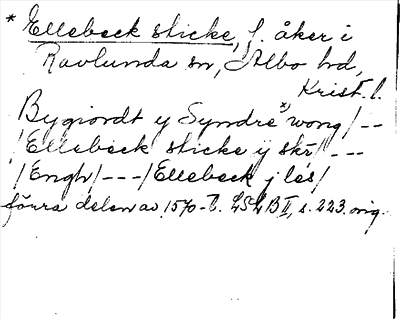 * Ellebeck sticke, f. åker i
Ravlunda sn, Albo hd,
Krist. l.
Bygiordt y Syndre x) wong/--
/Ellebeck sticke ij skr/---
/Engh/---/Ellebeck j les/
förra delen av 1570-t. LSLB II, s. 223. orig.